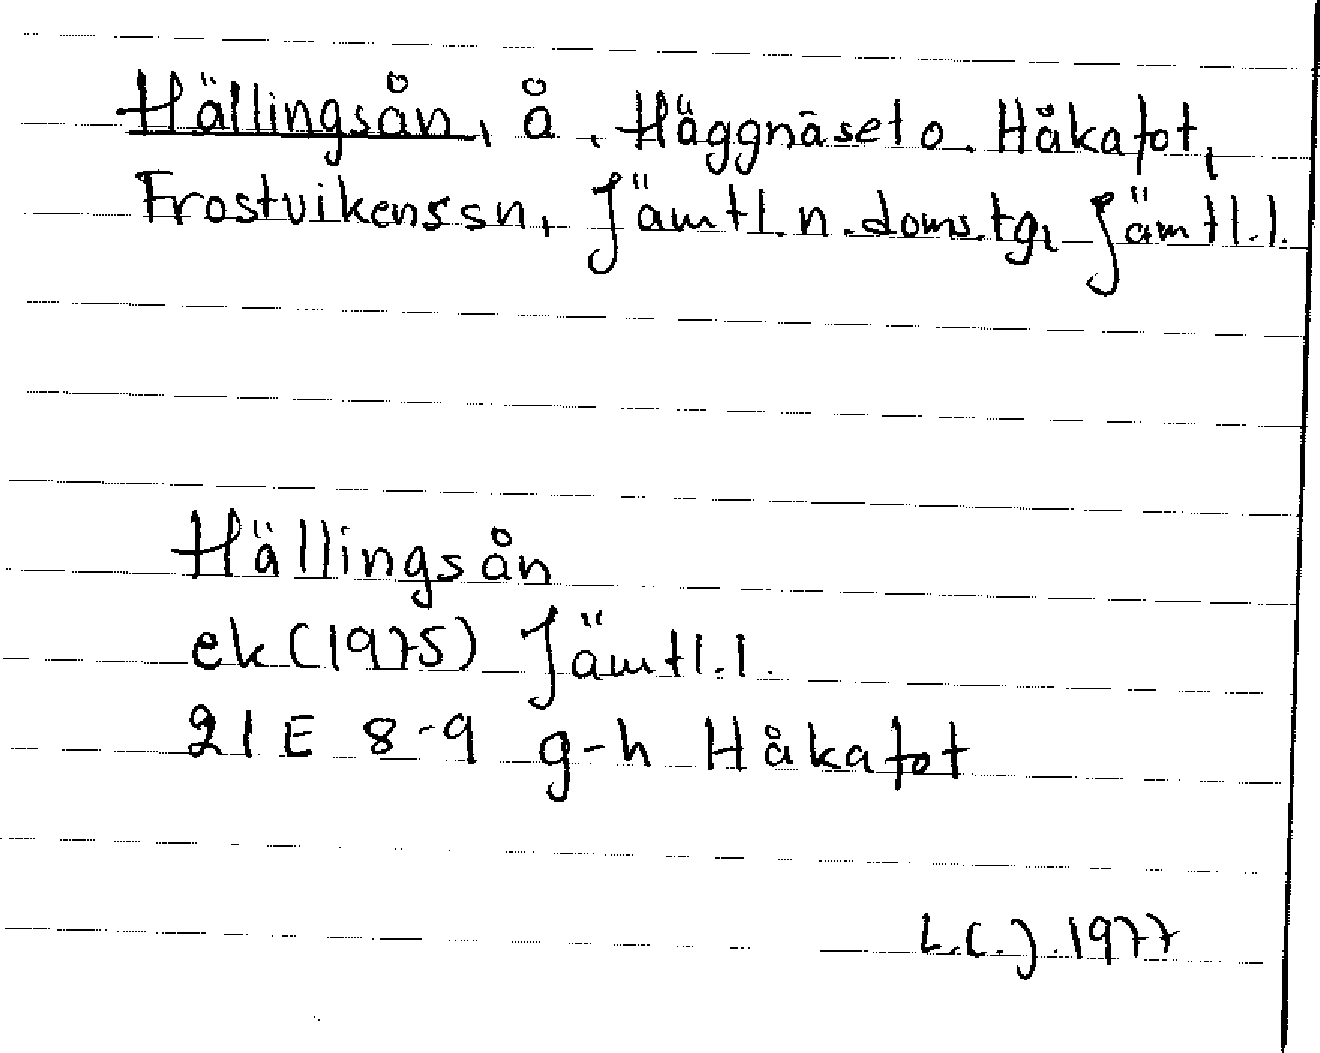 Hällingsån, å, Häggnäset o. Håkafot,
Frostvikens sn, Jämtl. n. doms. tg, Jämtl. l.
Hällingsån
ek (1975) Jämtl. l.
21 E 8-9 g-h Håkafot
L.C.J. 1977